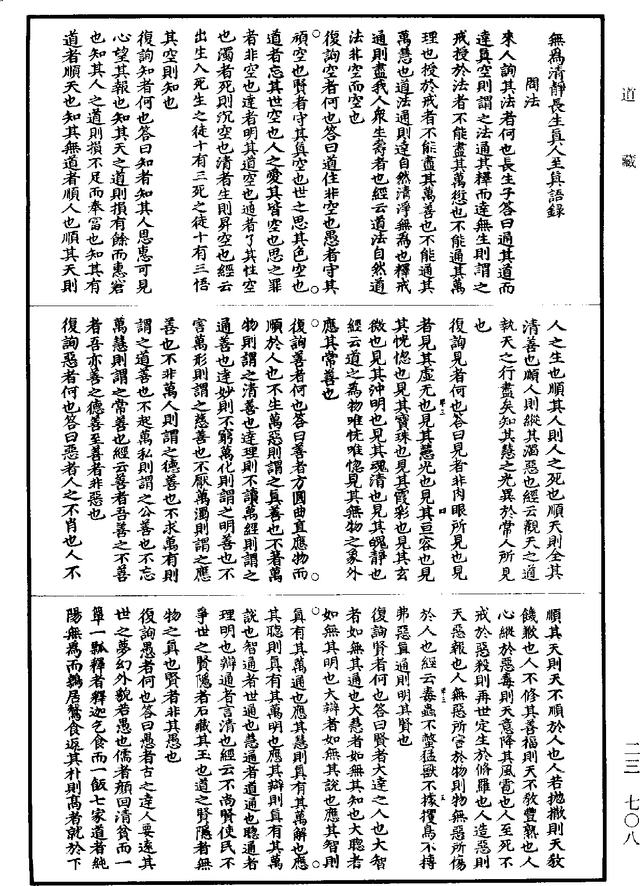 道藏
無為清靜長生真人至真語錄
問法
來人詢其法者何也長生子答曰通其道而
達真空則謂之法通其釋而達無生則謂之
戒授於法者不能盡其萬愆也不能通其萬
理也授於戒者不能盡其萬善也不能通其
萬慧也道法通則達自然清淨無為也釋戒
通則盡我人衆生壽者也經云道法自然道
法非空而空也
復詢空者何也答曰道住非空也愚者守其
頑空也賢者守其真空也世之思其色空也
道者忘其世空也人之愛其皆空也思之罪
者非空也達者明其道空也者了其性空
也濁者死則沉空也清者生則昇空也經云
出生入死生之徒十有三死之徒十有三悟
其空則知也
復詢知者何也答曰知者知其人思惠可見
心望其報也知其天之道則損有餘而惠窘
也知其人之道則損不足而奉富也知其有
道者順天也知其無道者順人也順其天則
人之生也順其人則人之死也順天則全其
清善也順人則縱其濁惡也經云觀天之道
執天之行盡矣知其慧之光異於常人所見
也
復詢見者何也答曰見者非肉眼所見也見
者見其虛无也見其慧光也見其亘容也見
其恍惚也見其寶珠也見其霞彩也見其玄
微也見其沖明也見其魂清也見其魄靜也
經云道之為物唯恍唯惚見其無物之象外
應其常善也
復詢善者何也答曰善者方圓曲直應物而
順於人也不生萬惡則謂之真善也不著萬
物則謂之清善也達理則不讀萬經則謂之
通善也達妙則不窮萬化則謂之明善也不
害萬形則謂之慈善也不厭萬濁則謂之應
善也不非萬人則謂之德善也不求萬有則
謂之道善也不起萬私則謂之公善也不忘
萬慧則謂之常善也經云善者吾善之不善
者吾亦善之德善至善者非惡也
復詢惡者何也答曰惡者人之不肖也人不
順其天則天不順於人也人若拋撒則天教
饑歉也人不修其善福則天不教豐熟也人
心縱於惡毒則天意降其風雹也人至死不
戒於惡殺則再世定生於脩羅也人造惡則
天惡報也人無惡所害於物則物無惡所傷
於人也經云毒蟲不螫猛獸不據攫鳥不搏
弗惡真通則明其賢也
復詢賢者何也答曰賢者大達之人也大智
者如無其通也大慧者如無其知也大聰者
如無其明也大辯者如無其說也應其智則
真有其萬通也應其慧則真有其萬解也應
其聰則真有其萬明也應其辯則真有其萬
說也智通者世通也慧通者道通也聰通者
理明也辯通者言清也經云不尚賢使民不
爭世之賢隱者石藏其玉也道之賢隱者無
物之真也賢者非其愚也
復詢愚者何也答曰愚者古之達人要遠其
世之夢幻外貌若愚也儒者顏回清貧而一
簞一瓢釋者釋迦乞食而一飯七家道者純
陽無為而鶉居鷇食返其朴則高者就於下
二三 七〇八